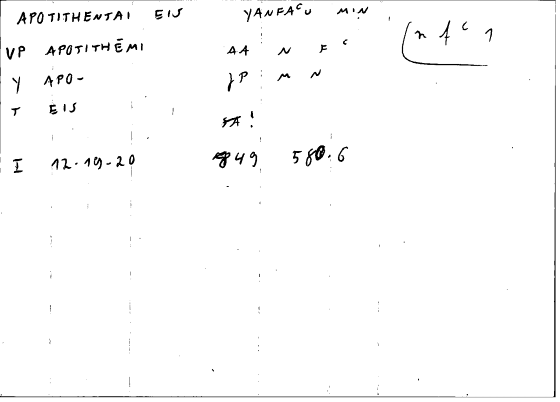 APOTITHENTAI EIS YANFAᶜU MIN (n f ᶜ 1
VP APOTITHĒMI AA N F ᶜ
Y APO- JP M N
T EIS SA!
I 12.19.20 849 580.6